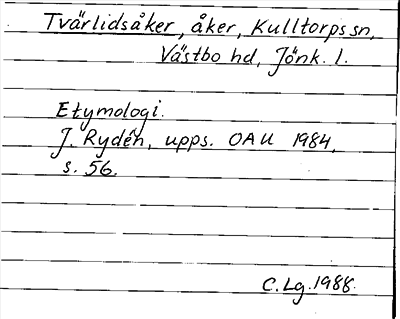 Tvärlidsåker, åker, Kulltorps sn,
Västbo hd, Jönk. l.
Etymologi.
J. Rydén, upps. OAU 1984,
s. 56.
C. Lg. 1988.